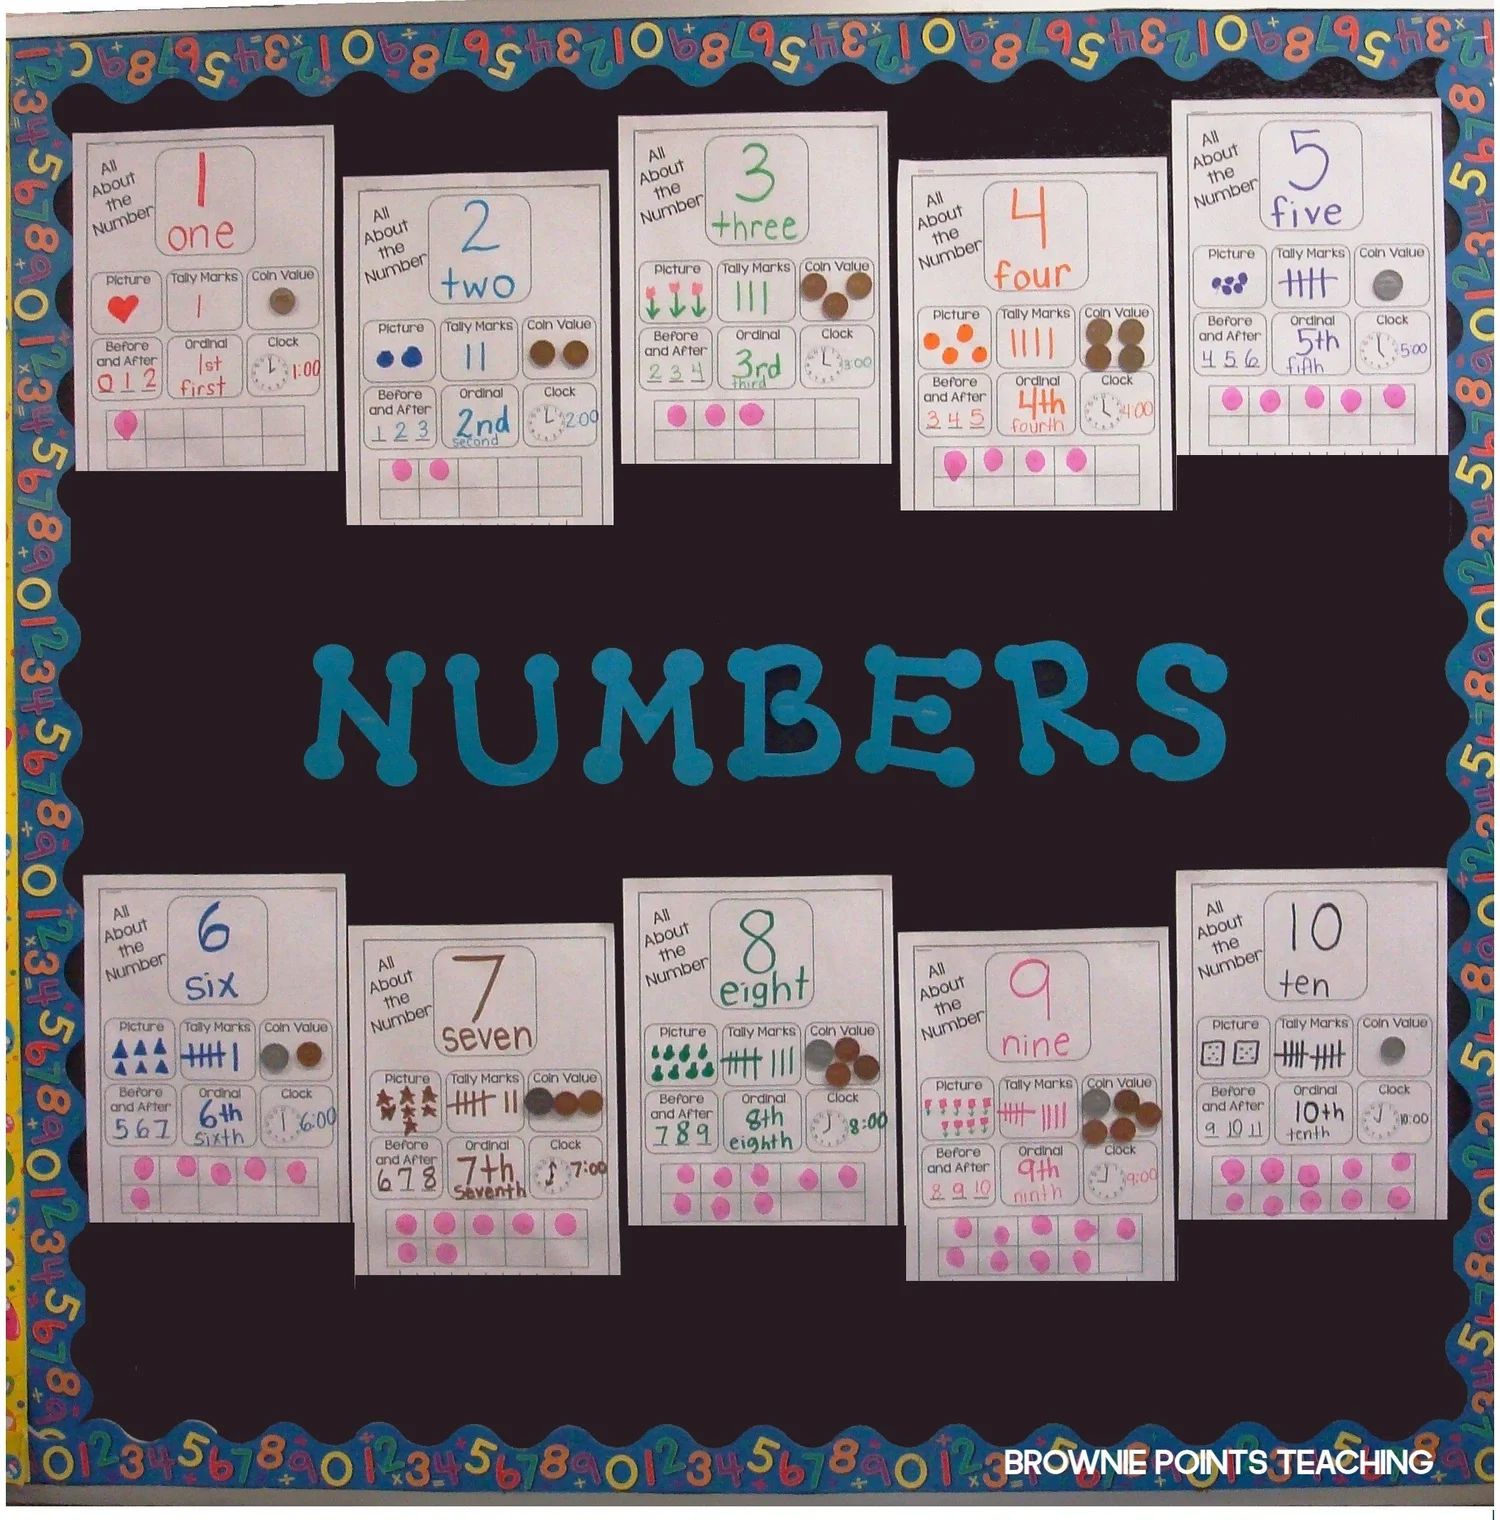 All
About
the
Number
1
one
Picture
Tally Marks
Coin Value
Before
and After
0 1 2
Ordinal
1st
first
Clock
1:00
All
About
the
Number
2
two
Picture
Tally Marks
Coin Value
Before
and After
1 2 3
Ordinal
2nd
second
Clock
2:00
All
About
the
Number
3
three
Picture
Tally Marks
Coin Value
Before
and After
2 3 4
Ordinal
3rd
third
Clock
3:00
All
About
the
Number
4
four
Picture
Tally Marks
Coin Value
Before
and After
3 4 5
Ordinal
4th
fourth
Clock
4:00
All
About
the
Number
5
five
Picture
Tally Marks
Coin Value
Before
and After
4 5 6
Ordinal
5th
fifth
Clock
5:00
NUMBERS
All
About
the
Number
6
six
Picture
Tally Marks
Coin Value
Before
and After
5 6 7
Ordinal
6th
sixth
Clock
6:00
All
About
the
Number
7
seven
Picture
Tally Marks
Coin Value
Before
and After
6 7 8
Ordinal
7th
seventh
Clock
7:00
All
About
the
Number
8
eight
Picture
Tally Marks
Coin Value
Before
and After
7 8 9
Ordinal
8th
eighth
Clock
8:00
All
About
the
Number
9
nine
Picture
Tally Marks
Coin Value
Before
and After
8 9 10
Ordinal
9th
ninth
Clock
9:00
All
About
the
Number
10
ten
Picture
Tally Marks
Coin Value
Before
and After
9 10 11
Ordinal
10th
tenth
Clock
10:00
BROWNIE POINTS TEACHING